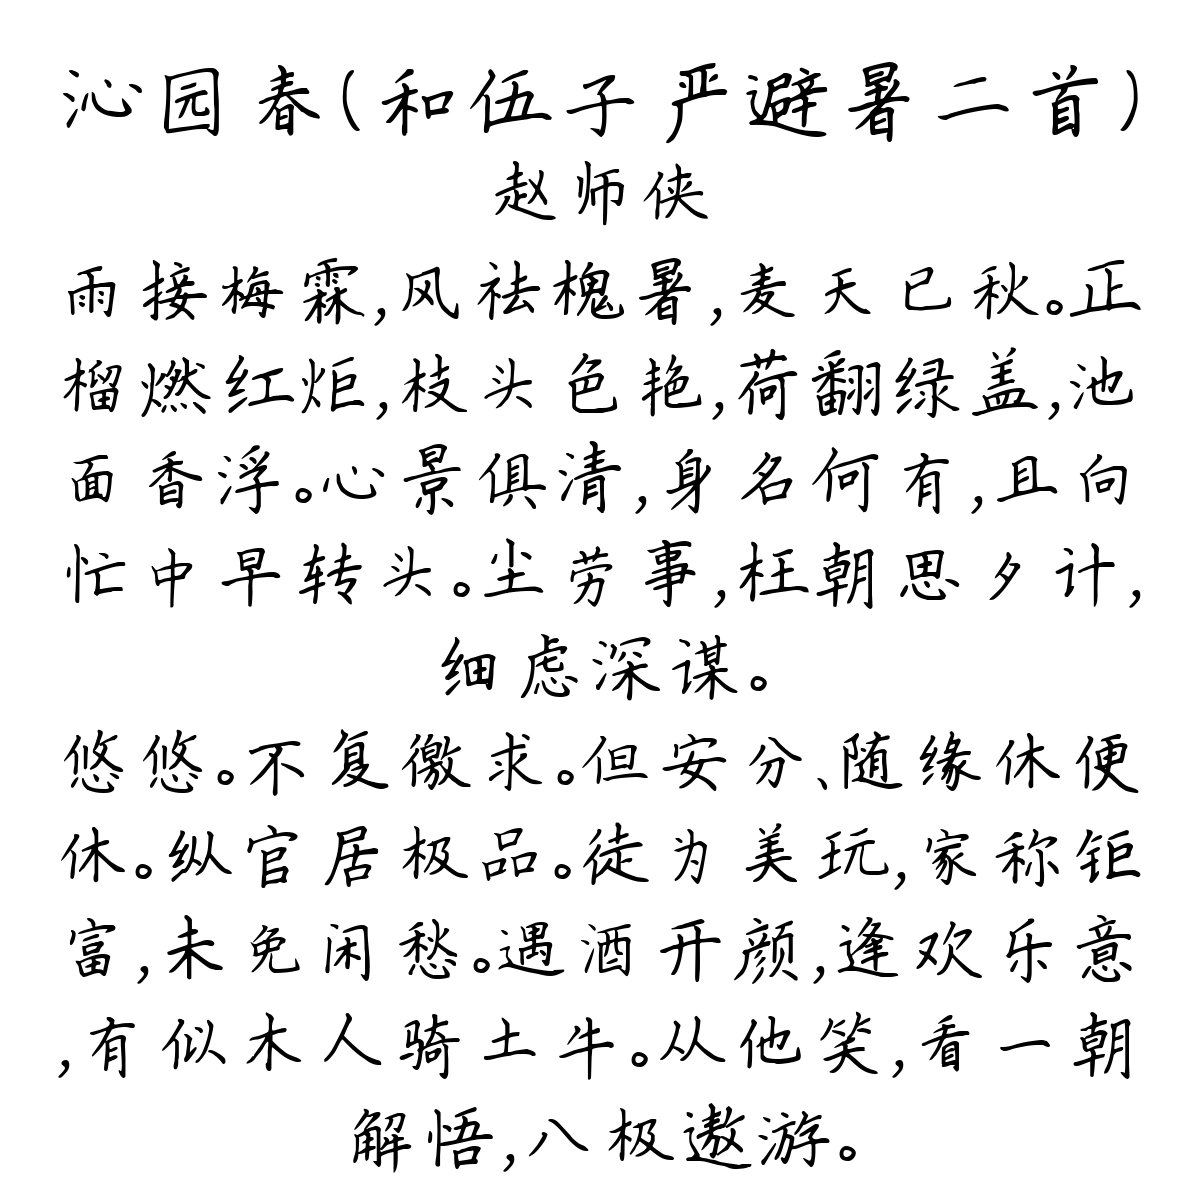 沁园春(和伍子严避暑二首)
赵师侠
雨接梅霖,风祛槐暑,麦天已秋。正
榴燃红炬,枝头色艳,荷翻绿盖,池
面香浮。心景俱清,身名何有,且向
忙中早转头。尘劳事,枉朝思夕计,
细虑深谋。
悠悠。不复徼求。但安分、随缘休便
休。纵官居极品。徒为美玩,家称钜
富,未免闲愁。遇酒开颜,逢欢乐意
,有似木人骑土牛。从他笑,看一朝
解悟,八极遨游。